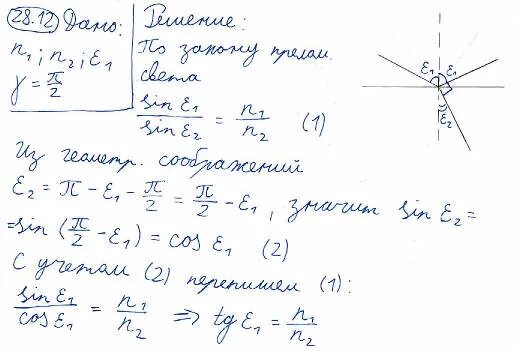 28.12 Дано:
n₁; n₂; ε₁
γ = π/2
Решение:
По закону прелом.
света
sin ε₁ / sin ε₂ = n₁ / n₂ (1)
ε₁ ε₁
ε₂
Из геометр. соображений
ε₂ = π − ε₁ − π/2 = π/2 − ε₁, значит sin ε₂ =
= sin (π/2 − ε₁) = cos ε₁ (2)
С учетом (2) перепишем (1):
sin ε₁ / cos ε₁ = n₁ / n₂ ⇒ tg ε₁ = n₁ / n₂